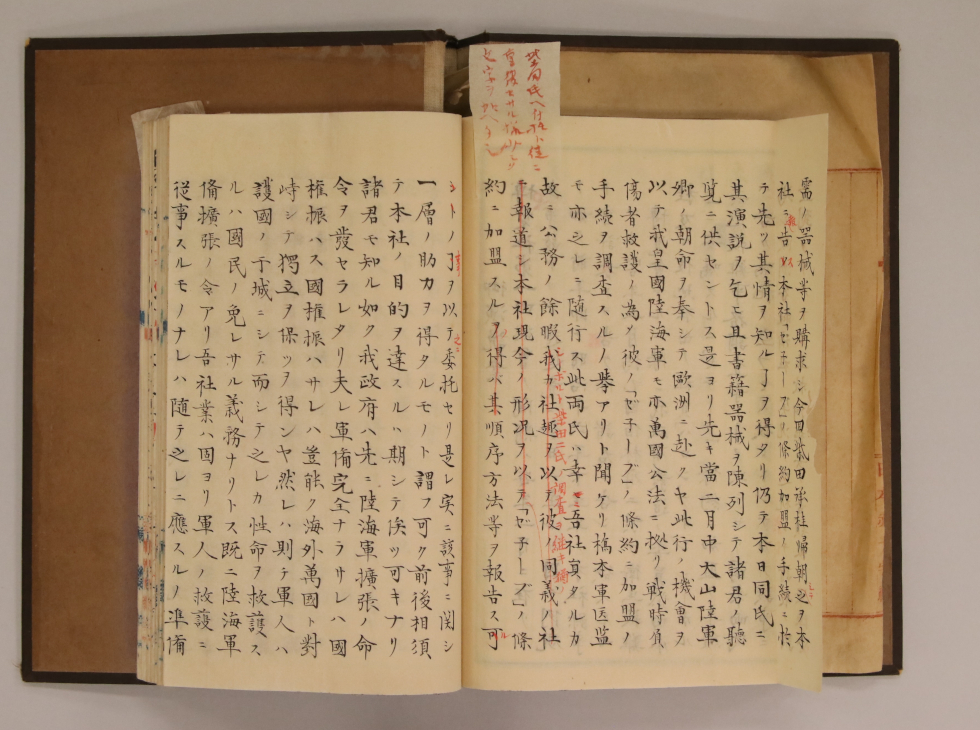 需ノ器械等ヲ購求シ今回柴田承桂帰朝之ヲ本
社ニ告ケ本社「ゼ子ーブ」條約加盟ノ手續ニ於
テ先ツ其情ヲ知ル丁ヲ得タリ仍テ本日同氏ニ
其演説ヲ乞ヒ且書籍器械ヲ陳列シテ諸君ノ聽
覧ニ供セントス是ヨリ先キ當二月中大山陸軍
卿ノ朝命ヲ奉シテ歐洲ニ赴クヤ此行ノ機會ヲ
以テ我皇國陸海軍モ亦萬國公法ニ拠リ戰時負
傷者救護ノ為メ彼ノ「ゼ子ーブ」ノ條約ニ加盟ノ
手続ヲ調査スルノ挙アリト聞ケリ橋本軍医監
モ亦之レニ随行ス此両氏ハ幸ニ吾社員タルカ
故ニ公務ノ餘暇我カ社趣ヲ以テ彼ノ同義ノ社
ニ報道シ本社現今ノ形况ヲ以テ「ゼ子ーブ」ノ條
約ニ加盟スルヲ得バ其順序方法等ヲ報告ス可
シトノ丁ヲ以テ委托セリ是レ実ニ該事ニ関シ
一層ノ助力ヲ得タルモノト謂フ可ク前後相須
テ本社ノ目的ヲ達スルハ期シテ俟ツ可キナリ
諸君モ知ル如ク我政府ハ先ニ陸海軍擴張ノ命
令ヲ發セラレタリ夫レ軍備完全ナラサレハ國
権振ハス國権振ハサレハ豈能ク海外萬國ト對
峙シテ獨立ヲ保ツヲ得ンヤ然レハ則チ軍人ハ
護國ノ干城ニシテ而シテ之レカ性命ヲ救護ス
ルハ國民ノ免レサル義務ナリトス既ニ陸海軍
備擴張ノ令アリ吾社業ハ固ヨリ軍人ノ救護ニ
従事スルモノナレハ随テ之レニ應スルノ準備